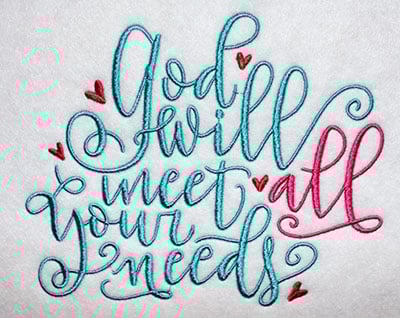 God
will
meet all
Your
needs